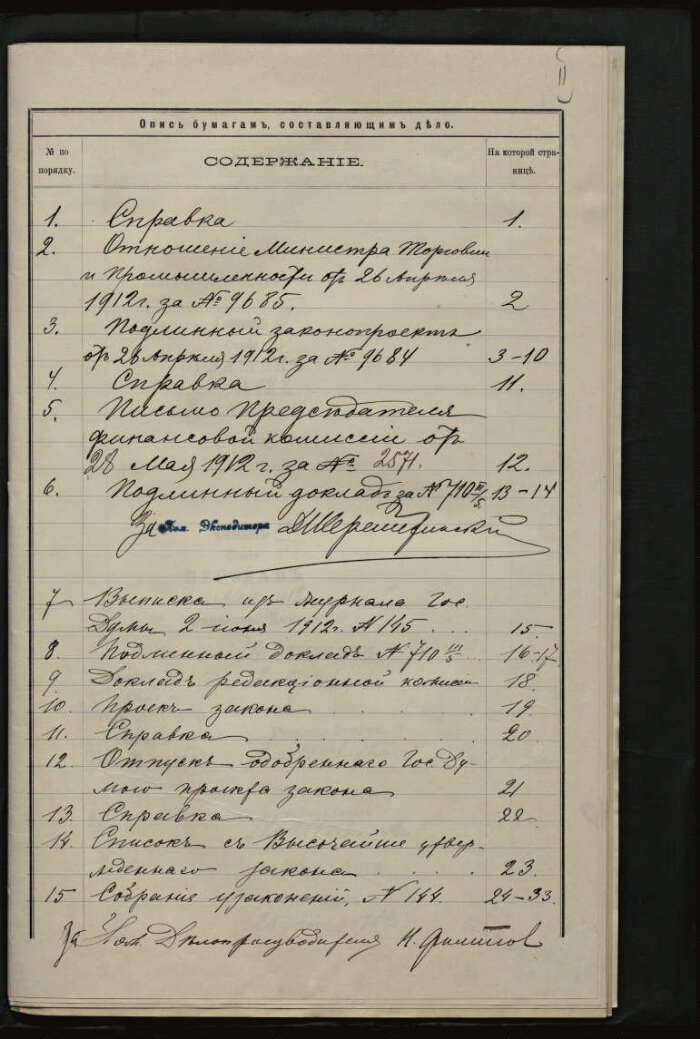 II
Опись бумагамъ, составляющимъ дѣло.
№ по порядку.
СОДЕРЖАНІЕ.
На которой стра-
ницѣ.
1. Справка 1.
2. Отношеніе Министра Торговли
и Промышленности отъ 26 Апрѣля
1912 г. за № 9685. 2
3. Подлинный законопроектъ
отъ 26 Апрѣля 1912 г. за № 9684 3-10
4. Справка 11.
5. Письмо Предсѣдателя
финансовой комиссіи отъ
28 Мая 1912 г. за № 2571. 12.
6. Подлинный докладъ за № 710 III/5 13-14
За Пом. Экспедитора
7 Выписка изъ журнала Гос.
Думы 2 іюня 1912 г. № 145 15.
8. Подлинный докладъ № 710 III/5 16-17
9 Докладъ редакціонной комиссіи 18.
10. Проектъ закона 19.
11. Справка 20
12. Отпускъ одобреннаго Гос. Ду-
мою проекта закона 21
13. Справка 22
14. Списокъ съ Высочайше утвер-
жденнаго закона 23.
15 Собраніе узаконеній, № 144. 24-33.
За Пом. Дѣлопроизводителя Н. Филиппов